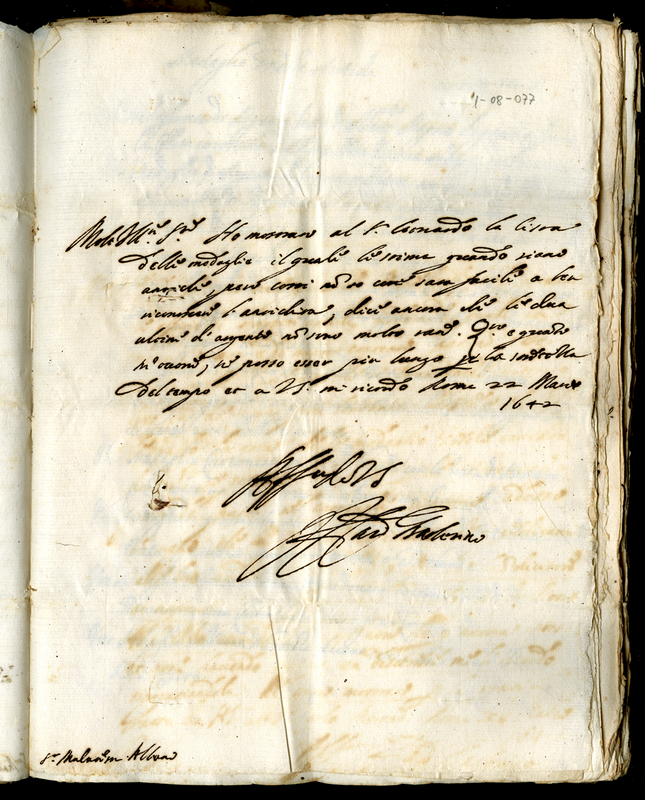 1-08-077
Molt' Ill.re S.re Ho mostrato al S.r Leonardo la lista
delle medaglie il quale le stima quando siano
antiche, pero costi nõ so come sara facile a ben
riconoscere l'antichita, dice ancora che le due
ultime d'argento nõ sono molto rare. Q.to e quanto
m'occorre, ne posso esser piu lungo per la strettezza
del tempo et a V.S. mi ricordo Roma 22 Marzo
1642
Aff. di V.S.
Il Card Barberino
S.r